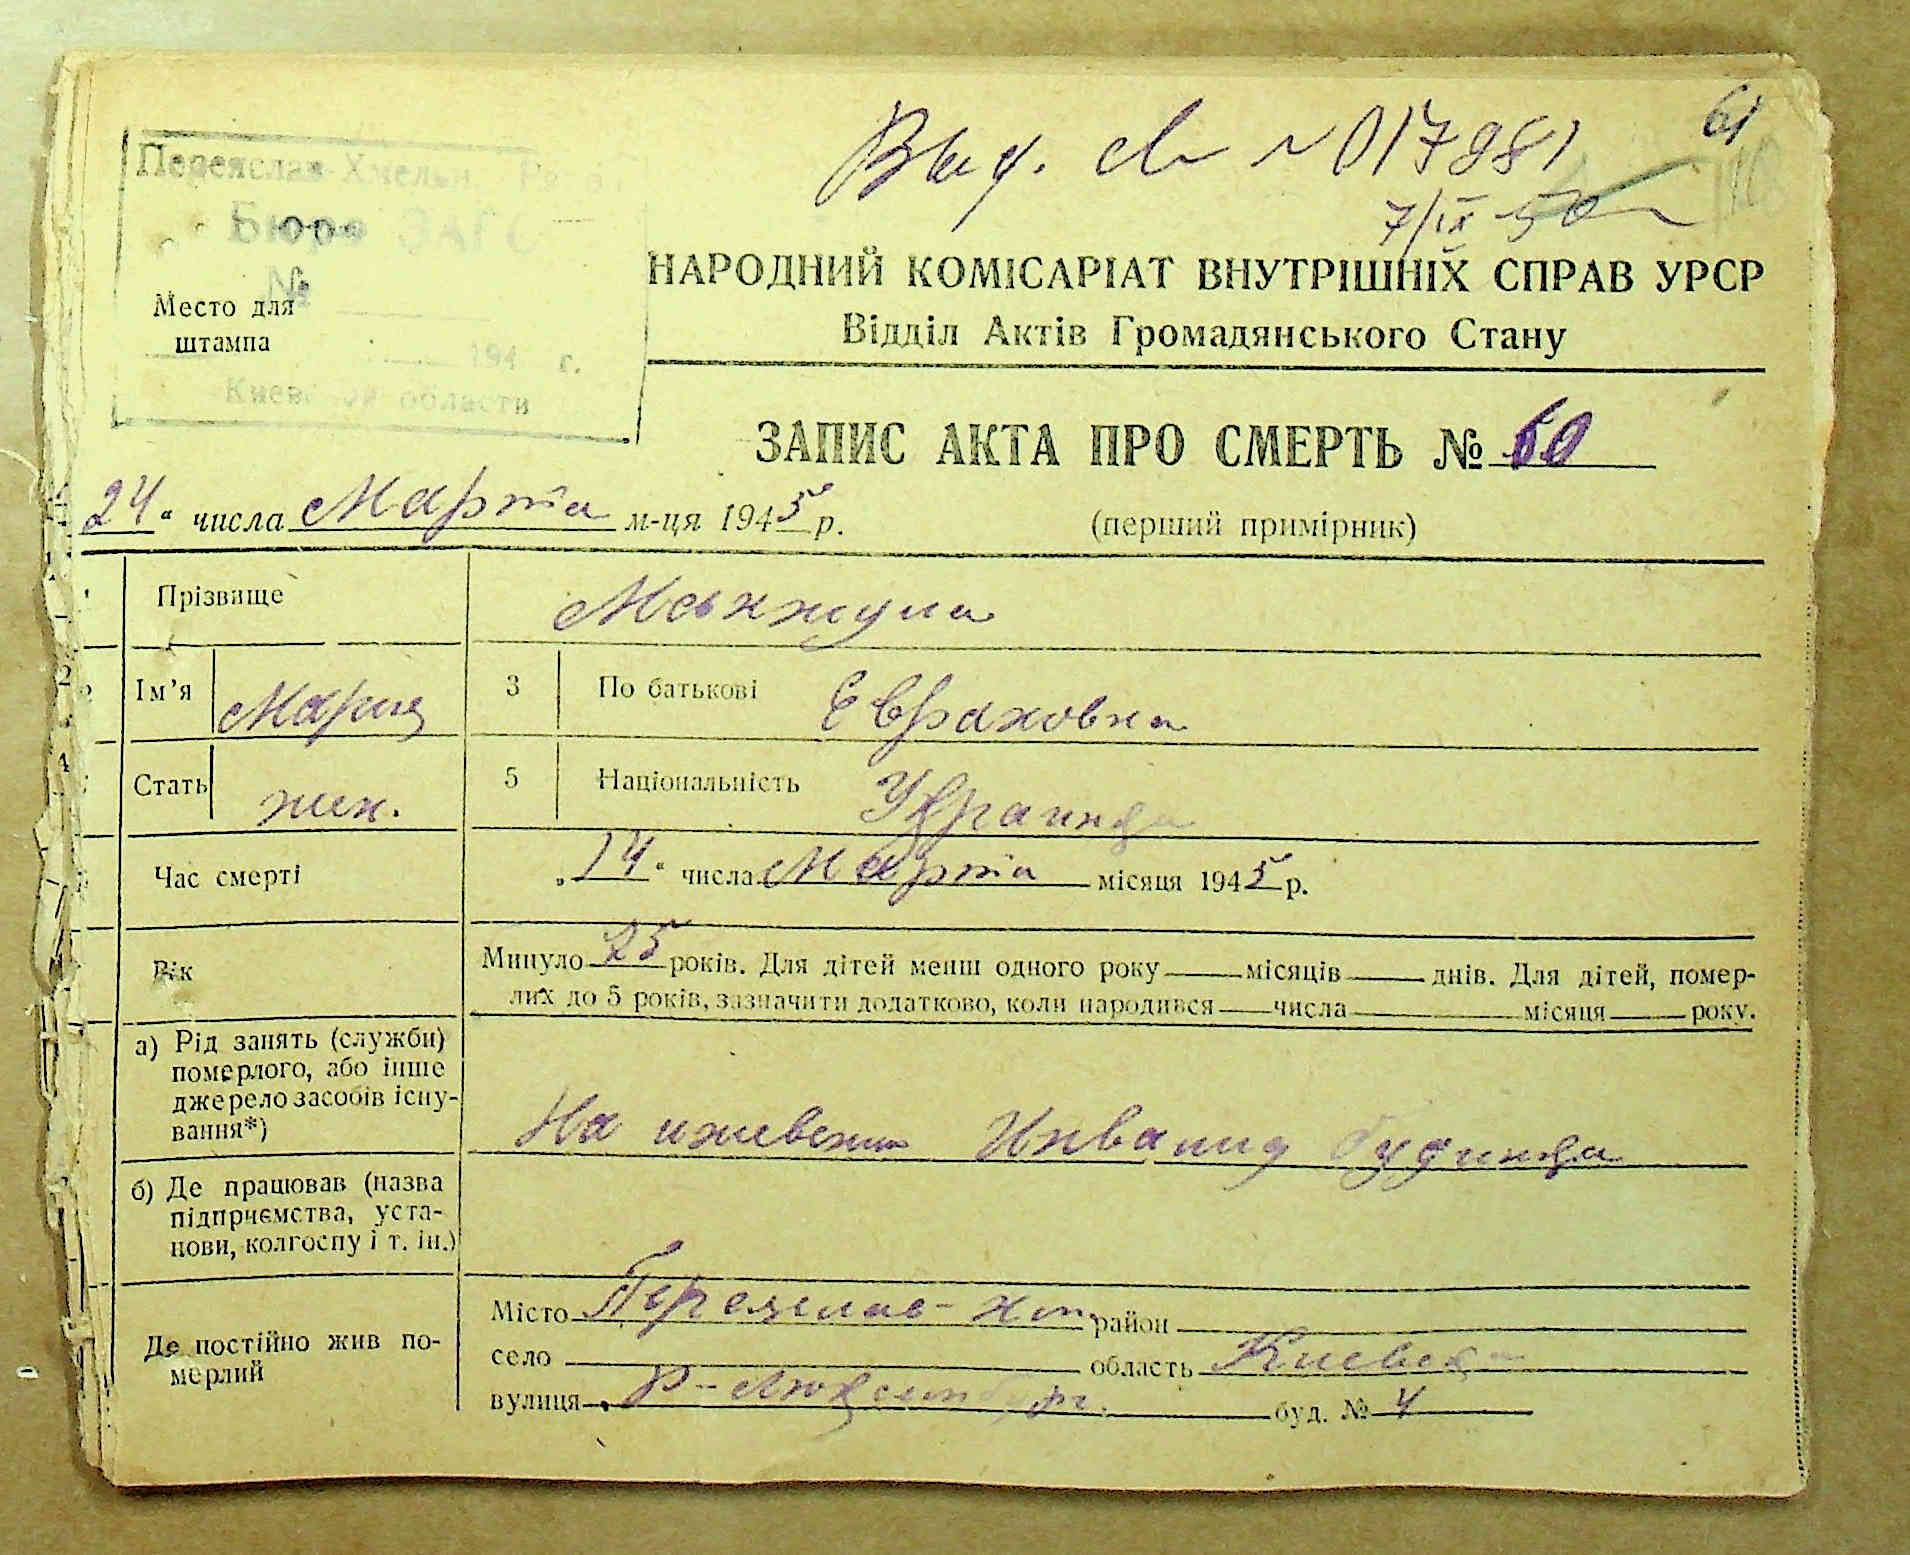 61
Выд. св № 017981
7/ІХ 50
Переяслав-Хмельн.
Бюро ЗАГС
№
Место для
штампа
194 г.
Киевской области
НАРОДНИЙ КОМІСАРІАТ ВНУТРІШНІХ СПРАВ УРСР
Відділ Актів Громадянського Стану
ЗАПИС АКТА ПРО СМЕРТЬ № 60
24 " числа Марта м-ця 1945 р.
(перший примірник)
Прізвище
2 Ім'я Мария 3 По батькові
4 Стать жен. 5 Національність Украинца
Час смерті „ 14 " числа Марта місяця 1945 р.
Рік Минуло 25 років. Для дітей менш одного року місяців днів. Для дітей, помер-
лих до 5 років, зазначити додатково, коли народився числа місяця року.
а) Рід занять (служби)
померлого, або інше
джерело засобів існу-
вання*)
На ижевении Инвалид будинка
б) Де працював (назва
підприємства, уста-
нови, колгоспу і т. ін.)
Де постійно жив по-
мерлий
Місто Переяслав-Хм. район
село область Киевска
вулиця Р-Люксембург. буд. № 4